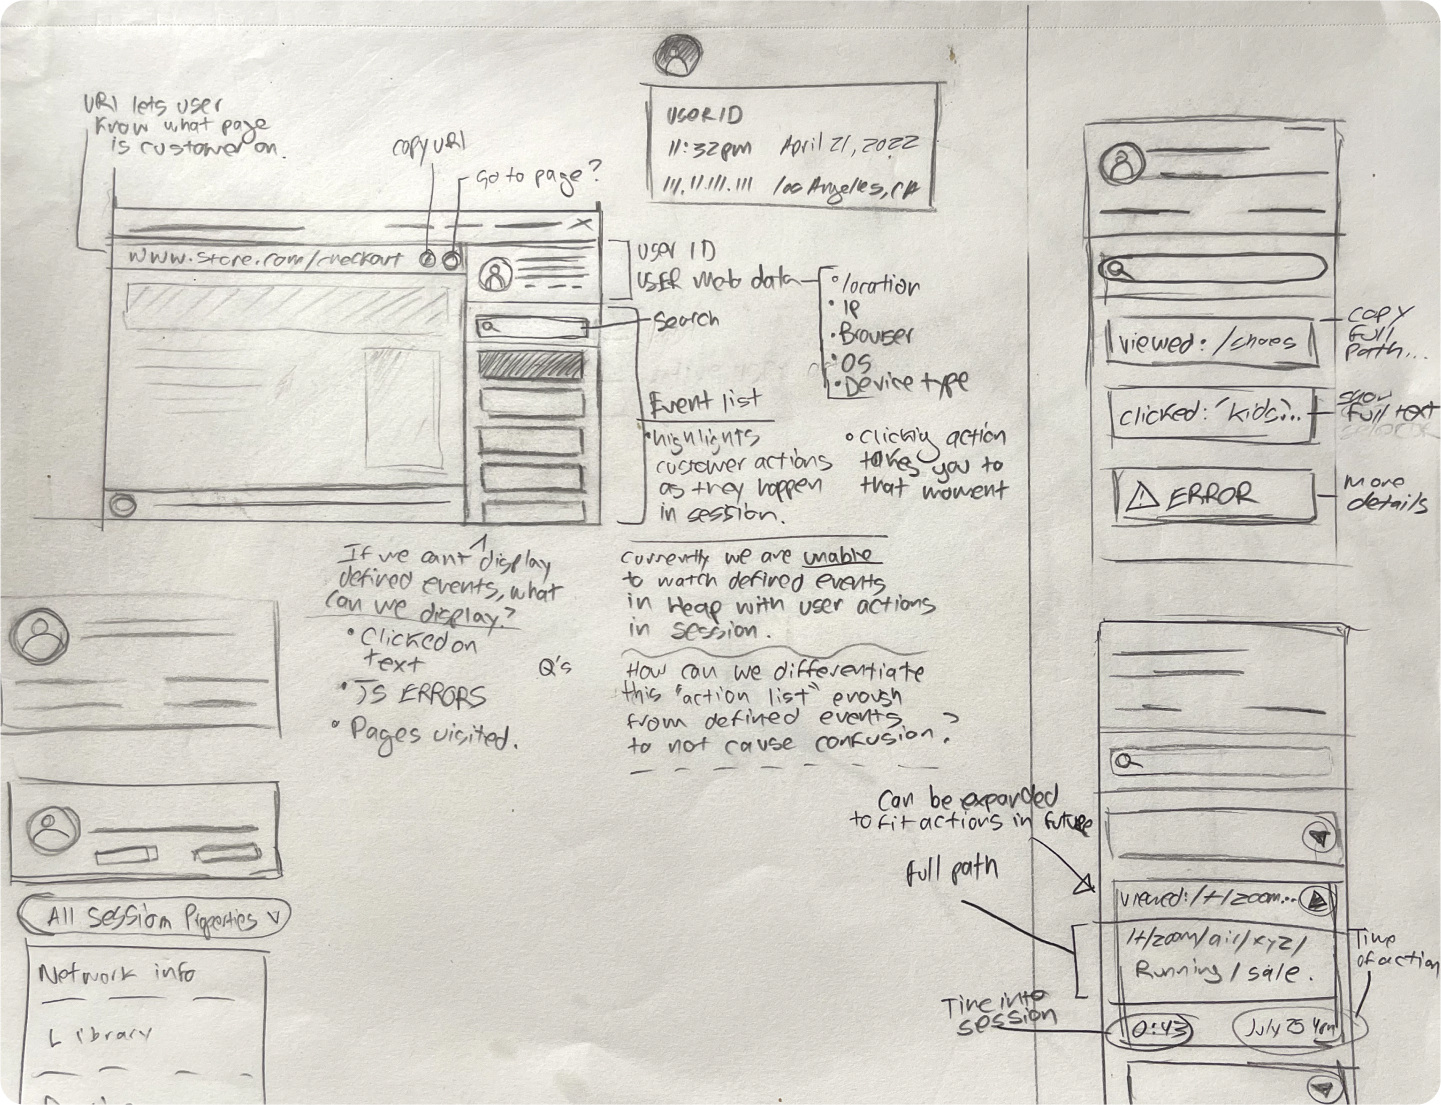 URL lets user
know what page
is customer on.
copy URL
Go to page?
www.store.com/checkout
USER ID
11:32pm April 21, 2022
111.11.111.111 Los Angeles, CA
USER ID
USER meta data
• location
• IP
• Browser
• OS
• Device type
Search
Event list
• highlights
customer actions
as they happen
in session.
• Clicking action
takes you to
that moment
If we cant display
defined events, what
can we display?
• Clicked on
text
• JS ERRORS
• Pages visited.
Currently we are unable
to watch defined events
in Heap with user actions
in session.
Q's
How can we differentiate
this "action list" enough
from defined events
to not cause confusion?
All Session Properties
Network info
Library
viewed: /shoes
copy
full
path...
clicked: "kids...
show
full text
ERROR
more
details
Can be expanded
to fit actions in future
full path
viewed:/t/zoom...
/t/zoom/air/xyz/
Running/sale.
Time into
session
0:43
July 25 4pm
Time
of action